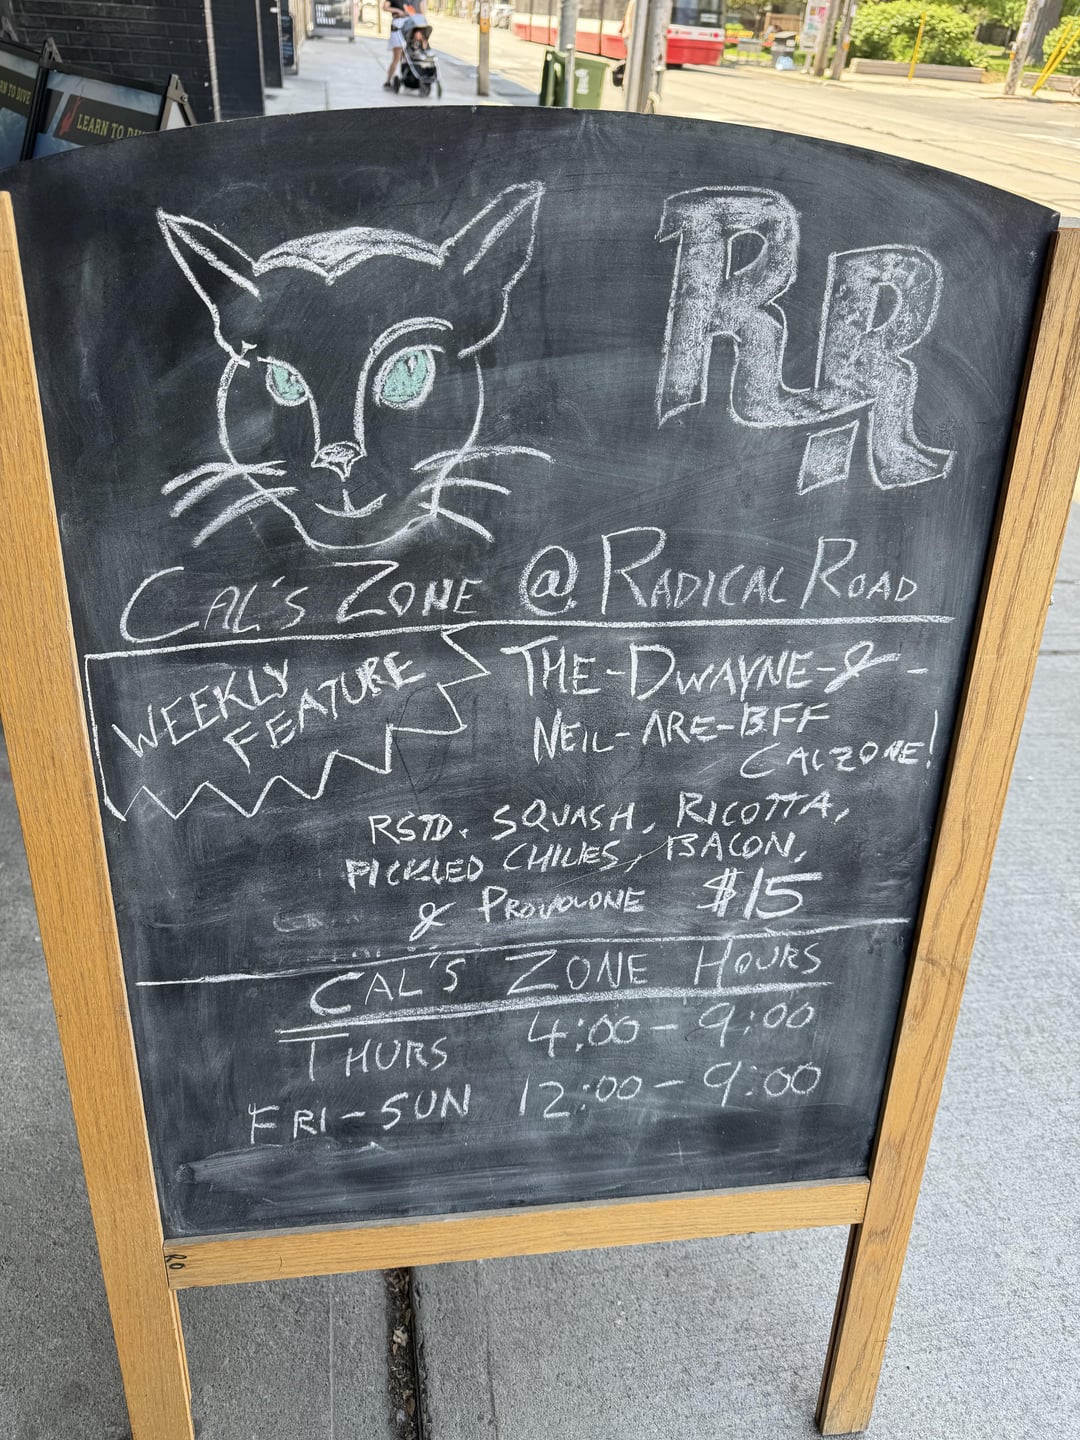 RN TO DIVE
LEARN TO DIV
RR
CAL'S ZONE @ RADICAL ROAD
WEEKLY
FEATURE
THE-DWAYNE-&-
NEIL-ARE-BFF
CALZONE!
RSTD. SQUASH, RICOTTA,
PICKLED CHILIES, BACON,
& PROVOLONE $15
CAL'S ZONE HOURS
THURS 4:00-9:00
FRI-SUN 12:00-9:00
RO